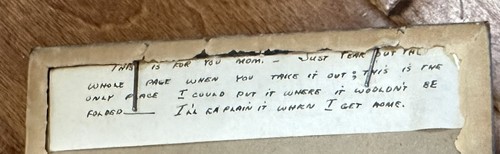 THIS IS FOR YOU MOM. — JUST TEAR OUT THE
WHOLE PAGE WHEN YOU TAKE IT OUT; THIS IS THE
ONLY PLACE I COULD PUT IT WHERE IT WOULDN'T BE
FOLDED — I'LL EXPLAIN IT WHEN I GET HOME.